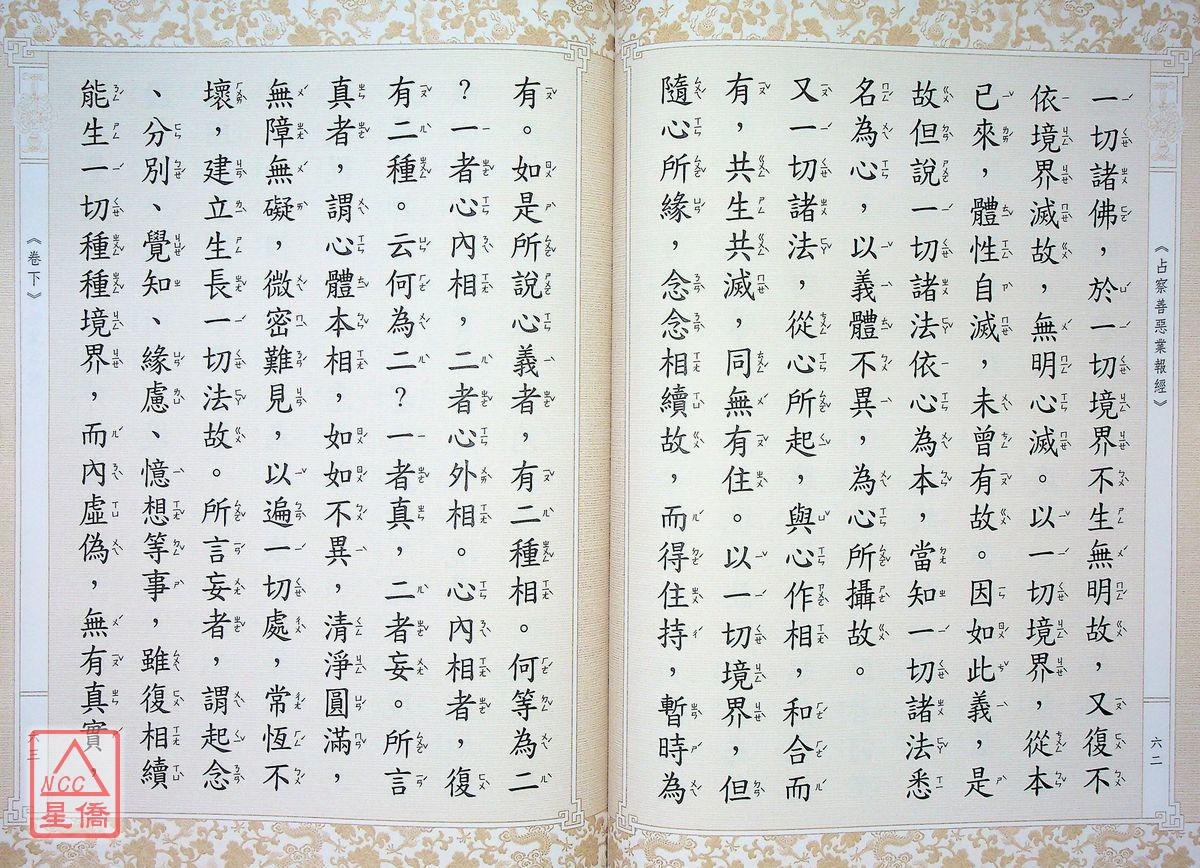 《占察善惡業報經》
一切諸佛，於一切境界不生無明故，又復不
依境界滅故，無明心滅。以一切境界，從本
已來，體性自滅，未曾有故。因如此義，是
故但說一切諸法依心為本，當知一切諸法悉
名為心，以義體不異，為心所攝故。
又一切諸法，從心所起，與心作相，和合而
有，共生共滅，同無有住。以一切境界，但
隨心所緣，念念相續故，而得住持，暫時為
六二
有。如是所說心義者，有二種相。何等為二
？一者心內相，二者心外相。心內相者，復
有二種。云何為二？一者真，二者妄。所言
真者，謂心體本相，如如不異，清淨圓滿，
無障無礙，微密難見，以遍一切處，常恆不
壞，建立生長一切法故。所言妄者，謂起念
、分別、覺知、緣慮、憶想等事，雖復相續
能生一切種種境界，而內虛偽，無有真實，
《卷下》
六三
NCC
星僑